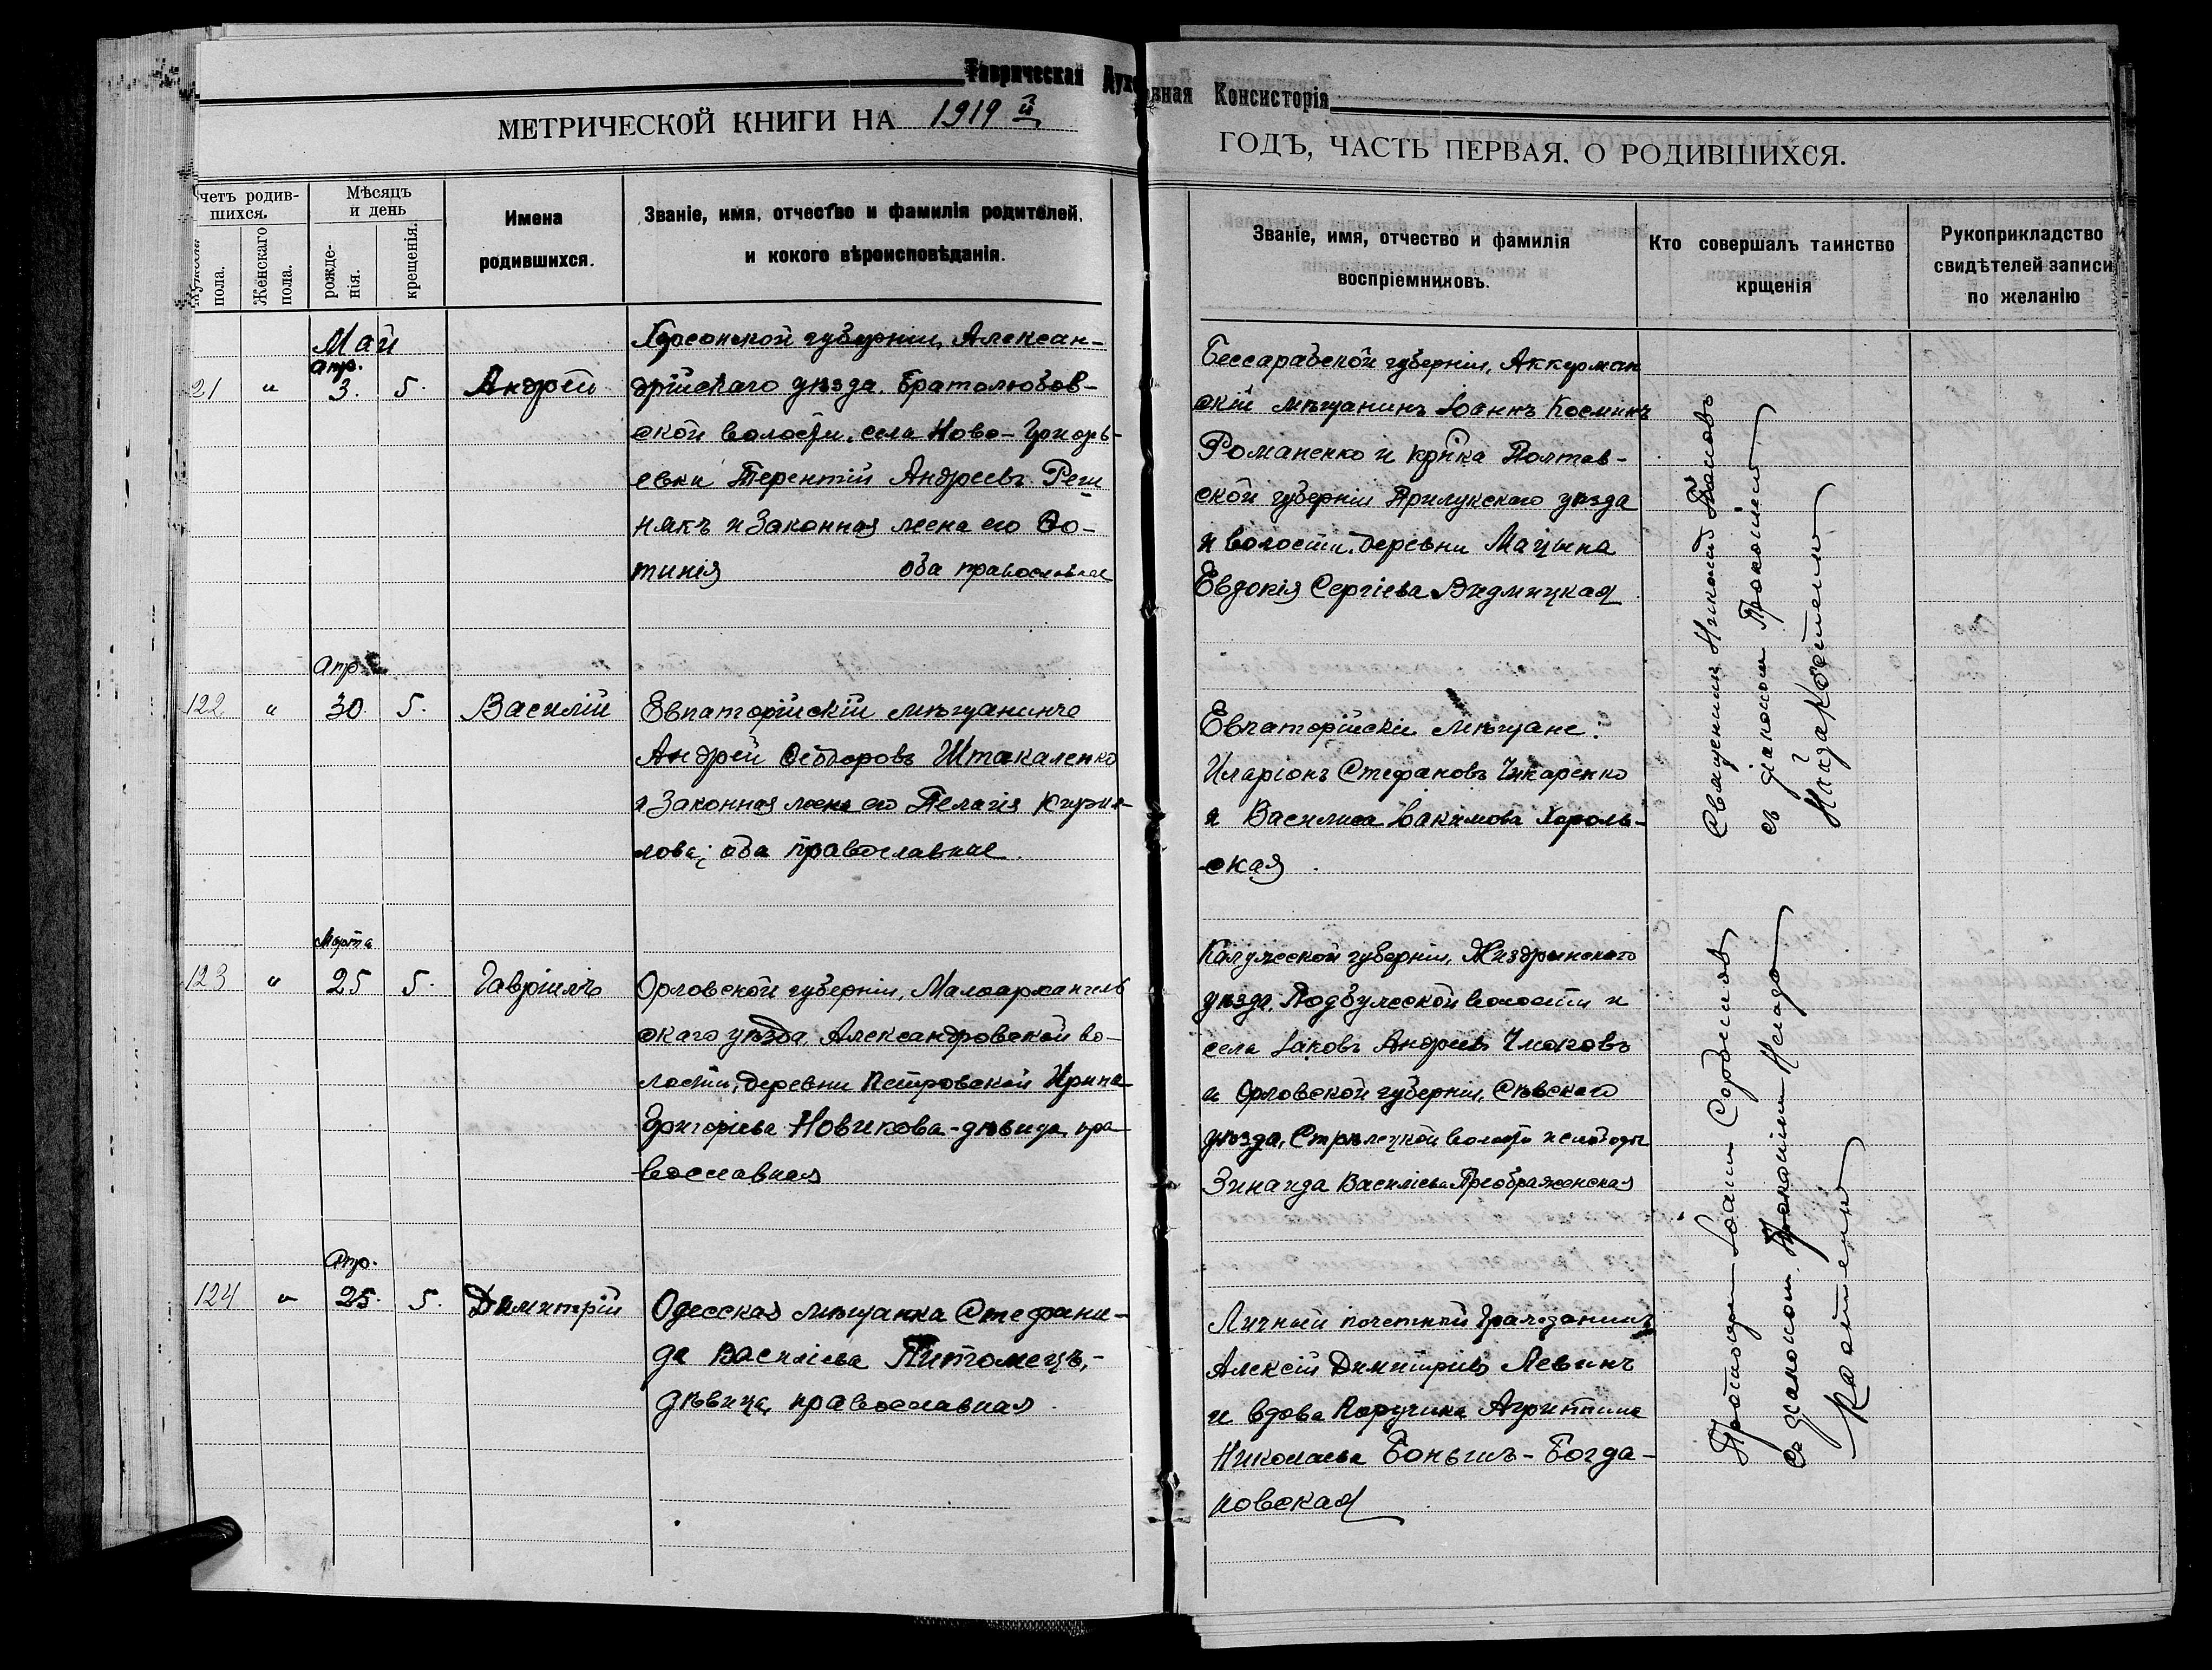 Таврическая Духовная Консисторія
МЕТРИЧЕСКОЙ КНИГИ НА 1919й
ГОДЪ, ЧАСТЬ ПЕРВАЯ, О РОДИВШИХСЯ.
Счетъ родив-
шихся.
пола.
Женскаго
пола.
Мѣсяцъ
и день
рожде-
нія.
крещенія.
Имена
родившихся.
Званіе, имя, отчество и фамилія родителей,
и кокого вѣроисповѣданія.
Званіе, имя, отчество и фамилія
воспріемниковъ.
Кто совершалъ таинство
крщенія
Рукоприкладство
свидѣтелей записи
по желанію
Май
21 " Апр. 3. 5. Андрей
Херсонской губерніи, Алексан-
дрійскаго уѣзда Братолюбов-
ской волости, села Ново-Григорь-
евки Терентій Андреевъ Реш
някъ и Законная жена его Фо-
тинія оба православные
Бессарабской губерніи, Аккерман
скій мѣщанинъ Іоаннъ Косминъ
Романенко и кр-ка Полтав-
ской губерніи Прилукскаго уѣзда
и волости, деревни Мацына
Евдокія Сергіева Видмицкая
Священникъ Николай Поповъ
съ діакономъ Прокопіемъ
Найда Костенко
Апр.
122. " 30. 5. Василій
Евпаторійскій мѣщанинъ
Андрей Ѳедоровъ Штакаленко
и Законная жена его Пелагія Кирил-
лова; оба православные.
Евпаторійскіе мѣщане:
Иларіонъ Стефановъ Чикаренко
и Василиса Іакимова Хороль-
ская.
Марта
123 " 25 5. Гавріилъ
Орловской губерніи, Малоархангель
скаго уѣзда, Александровской во-
лости, деревни Петровской Ирина
Григоріева Новикова-дѣвица, пра-
вославная
Калужской губерніи, Жиздринскаго
уѣзда, Подбужской волости и
села Іаковъ Андреевъ
и Орловской губерніи, Сѣвскаго
уѣзда, Стрѣлецкой волости и слободы
Зинаида Василіева Преображенская
Протоіерей Іоаннъ
съ діакономъ Прокопіемъ Найда
Костенко
Апр.
124 " 25. 5. Димитрій
Одесская мѣщанка Стефани-
да Василіева Питомецъ,-
дѣвица, православная.
Личный почетный гражданинъ
Алексій Димитріевъ Левинъ
и вдова Поручика Агриппина
Николаева Боньчъ-Богда-
новская